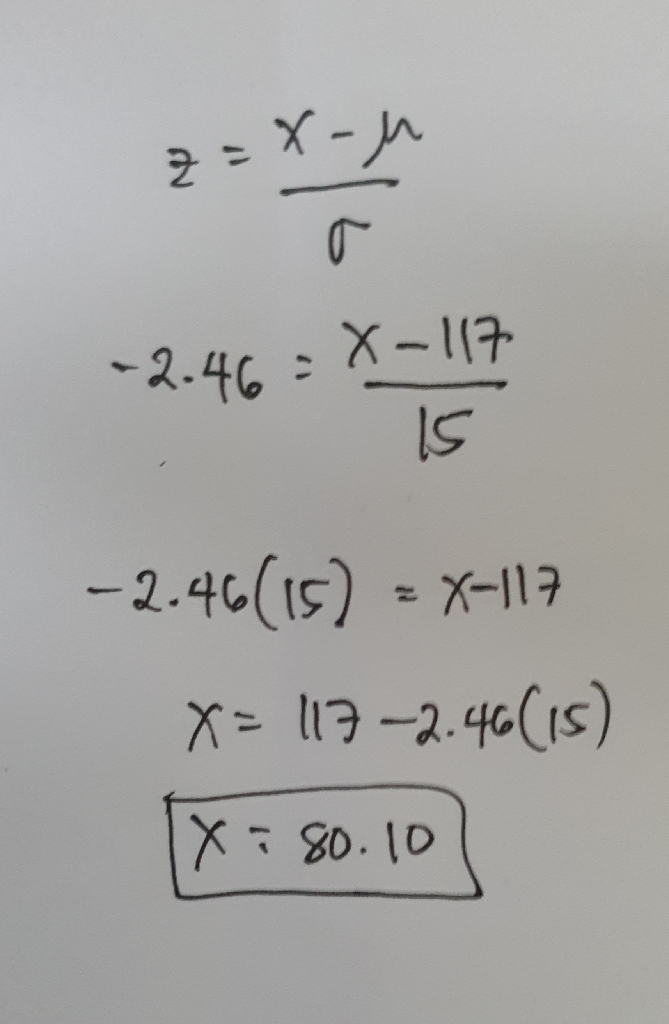 z = x - μ / σ
-2.46 = x - 117 / 15
-2.46(15) = x-117
x = 117 - 2.46(15)
x = 80.10